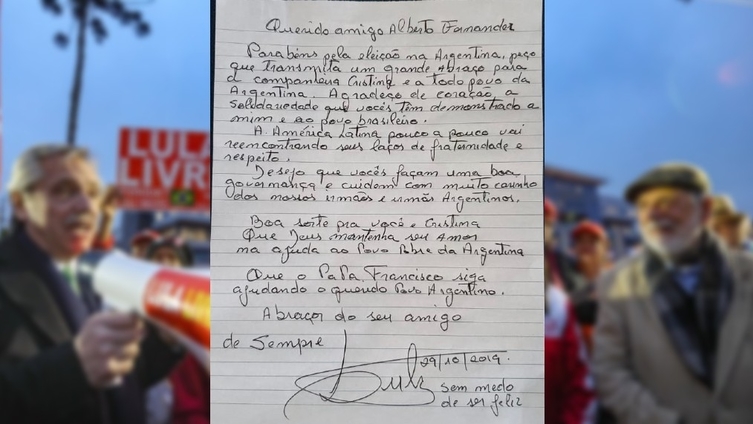 Querido amigo Alberto Fernandez
Parabéns pela eleição na Argentina, peço
que transmita um grande Abraço para
a companheira Cristina e a todo povo da
Argentina. Agradeço de coração, a
solidariedade que vocês têm demonstrado a
mim e ao povo brasileiro.
A América Latina pouco a pouco vai
reencontrando seus laços de fraternidade e
respeito.
Desejo que vocês façam uma boa
governança e cuidem com muito carinho
dos nossos irmãos e irmãs Argentinos.
Boa sorte pra você e Cristina
Que Deus mantenha seu Amor
na ajuda ao Povo Pobre da Argentina
Que o Papa Francisco siga
ajudando o querido Povo Argentino.
Abraços do seu amigo
de sempre
29/10/2019.
Lula
sem medo
de ser feliz
LULA
LIVRE